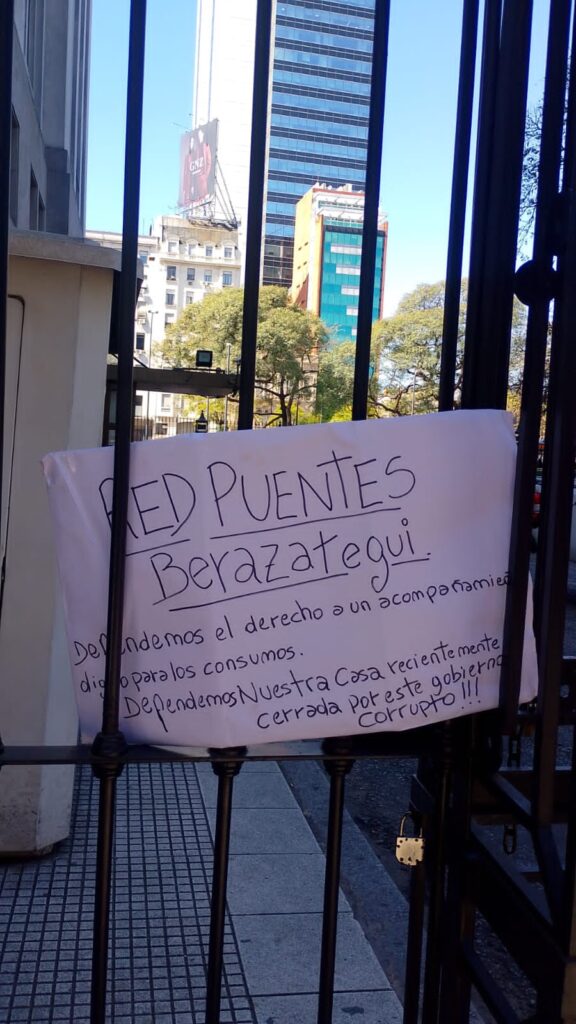 GNZ
RED PUENTES
Berazategui.
Defendemos el derecho a un acompañamie
digno para los consumos.
Defendemos Nuestra Casa recientemente
cerrada por este gobierno
corrupto!!!